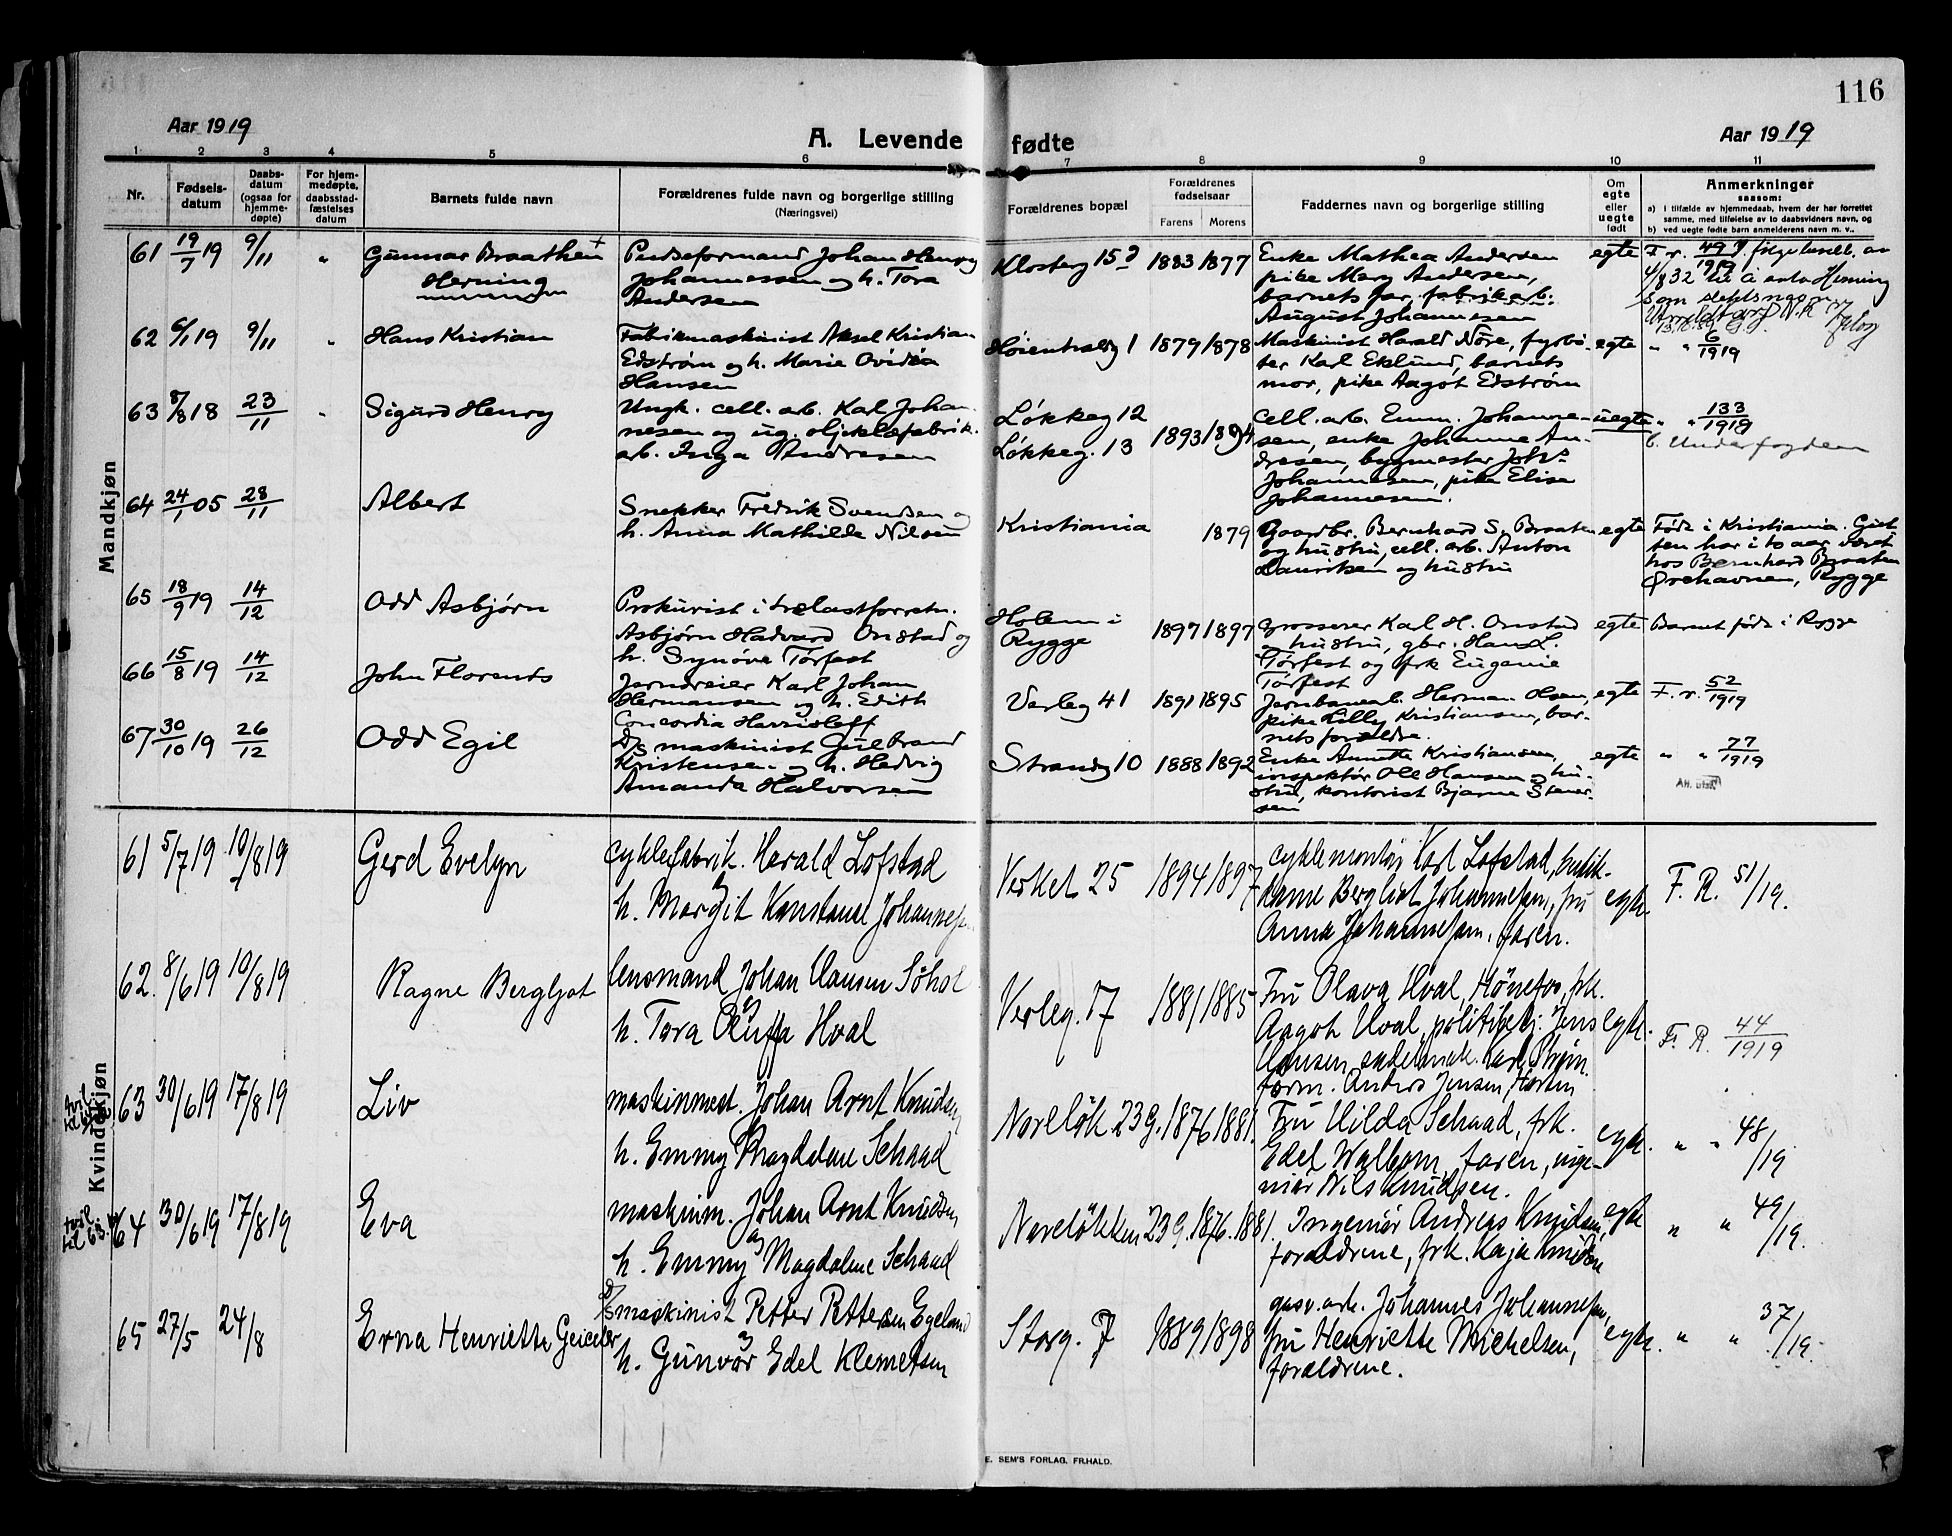 116
Aar 1919
A. Levende fødte
Aar 1919
1 2 3 4 5 6 7 8 9 10 11
Nr.
Fødsels-
datum
Daabs-
datum
(ogsaa for
hjemme-
døpte)
For hjem-
medøpte,
daabsstad-
fæstelses
datum
Barnets fulde navn
Forældrenes fulde navn og borgerlige stilling
(Næringsvei)
Forældrenes bopæl
Forældrenes
fødselsaar
Farens Morens
Faddernes navn og borgerlige stilling
Om
egte
eller
uegte
født
Anmerkninger
saasom:
a) i tilfælde av hjemmedaab, hvem der har forrettet
samme, med tilføielse av to daabsvidners navn, og
b) ved uegte fødte barn anmelderens navn m. v..
Mandkjøn
61 19/7 19 9/11 "
Gunnar Braathen +
Herning
Pudseformand Johan Henry
Johannessen og h. Tora
Andersen
Klosterg 15 d 1883 1877
Enke Mathea Andersen
pike Mary Andersen,
barnets far, fabrikarb.
August Johannesen
egte
F. r. 49/1919
4/8 32
62 6/1 19 9/11 "
Hans Kristian
Fabrikmaskinist Aksel Kristian
Edstrøm og h. Marie Ovidia
Hansen
Høientralsg 1 1879 1878
Maskinist Harald Nøre, fyrbø-
ter Karl Eklund, barnets
mor, pike Aagot Edstrøm
egte " " 6/1919
63 8/8 18 23/11 "
Sigurd Henry
Ungk. cell. arb. Karl Johan-
nesen og ug. oljeklæfabrik.
arb. Inga Andresen
Løkkeg 12
Løkkeg. 13
1893 1894
Cell. arb. Emm. Johanne-
sen, enke Johanne An-
dresen, bygmester Johs
Johannesen, pike Elise
Johannesen.
uegte " " 133/1919
b. Underfogden
64 24/1 05 28/11
Albert
Snekker Fredrik Svendsen og
h. Anna Mathilde Nilsen
Kristiania 1879
Gaardbr. Bernhard S. Braaten
og hustru, cell. arb. Anton
Lauritsen og hustru
egte
Født i Kristiania. Gut-
ten har i to aar været
hos Bernhard Braaten
Ørehavnen, Rygge
65 18/9 19 14/12
Odd Asbjørn
Prokurist i trælastforretn.
Asbjørn Hadvard Onstad og
h. Synøve Tørfest
Holem i
Rygge
1897 1897
Grosserer Karl H. Onstad
og hustru, gbr. Hans L.
Tørfest og frk Eugenie
Tørfest
egte Barnet født i Rygge
66 15/8 19 14/12
John Florents
Jerndreier Karl Johan
Hermansen og h. Edith
Concordia
Varleg 41 1891 1895
Jernbanearb. Herman Olsen,
pike Lilly Kristiansen, bar-
nets forældre.
egte F. r. 52/1919
67 30/10 19 26/12
Odd Egil
D/S maskinist Gulbrand
Kristensen og h. Hedvig
Amanda Halvorsen
Strandg 10 1888 1892
Enke Annette Kristiansen,
inspektør Ole Hansen og hu-
stru, kontorist Bjarne Stener-
sen
egte " " 77/1919
Att. utst.
Kvindekjøn
61 5/7 19 10/8 19
Gerd Evelyn
cyklefabrik. Harald Lofstad
og
h. Margit Konstanse Johannesen
Verket 25 1894 1897
cyklemontør Karl Lofstad, butik-
dame Bergliot Johannesen, fru
Anna Johannesen, faren.
egte. F. R. 51/19.
62. 8/6 19 10/8 19
Ragne Bergljot
lensmand Johan Hansen Söhol
og
h. Tora Oluffa Hval
Verleg. 17 1881 1885
Fru Olava Hval, Hønefos, frk.
Aagot Hval, politibetj. Jens
Hansen, sadelmak. Karl
form. Anders Jensen, Horten
egte. F. R. 44/1919
63 30/6 19 17/8 19
Liv
maskinmest. Johan Arnt Knudsen
h. Emmy Magdalene Schaad
Noreløk 23 g. 1876 1881.
Fru Hilda Schaad, frk.
Edel Walbom, faren, inge-
niør Nils Knudsen.
egte. " " 48/19
tvil.
til 63.
64 30/6 19 17/8 19
Eva
maskinm. Johan Arnt Knudsen
og
h. Emmy Magdalene Schaad
Noreløkken 23 g. 1876. 1881.
Ingeniør Andreas Knudsen,
forældrene, frk. Kaja Knudsen
egte " " 49/19.
65 27/5 24/8
Erna Henriette Geicler
D/S maskinist Petter Pettersen Egeland
og
h. Gunvor Edel Klemetsen
Storg. 7 1889 1898
gasv. arb. Johannes Johannesen,
fru Henriette Michelsen,
forældrene.
egte. " " 37/19.
E. SEM'S FORLAG, FR.HALD.